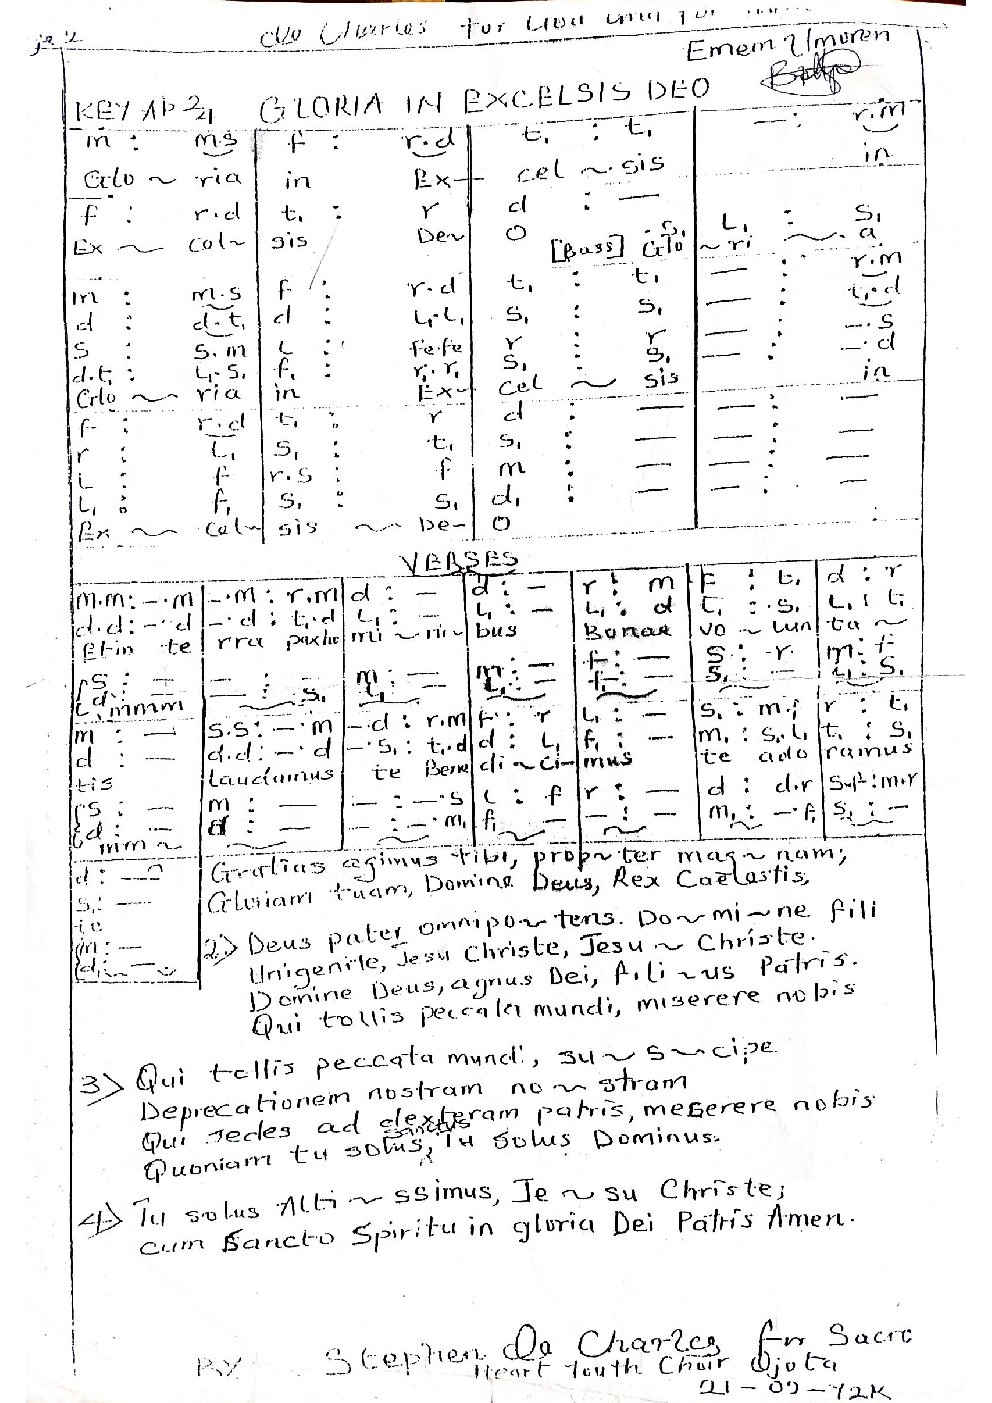 de Charles for
Emem Umoren
KEY Ab 2/4 GLORIA IN EXCELSIS DEO
m : m.s | f : r.d | t₁ : t₁ | — : r.m
Glo ~ ria in Ex- cel ~ sis in
f : r.d | t₁ : r | d : — .S₁ | L₁ : S₁
Ex ~ cel~ sis De~ O [Bass] Glo ~ ri ~ a
m : m.s | f : r.d | t₁ : t₁ | — : r.m
d : d.t₁ | d : L₁.L₁ | S₁ : S₁ | — : t₁.d
S : S.m | L : fe.fe | r : r | — : —.s
d.t₁ : L₁.S₁ | f₁ : r₁.r₁ | S₁ : S₁ | — : —.d
Glo ~ ria in Ex- cel ~ sis in
f : r.d | t₁ : r | d : — | — : —
r : L₁ | S₁ : t₁ | S₁ : — | — : —
L : f | r.s : f | m : — | — : —
L₁ : f₁ | S₁ : S₁ | d₁ : — | — : —
Ex ~ cel~ sis ~ De- O
VERSES
m.m : —.m | —.m : r.m | d : — | d : — | r : m | f : t₁ | d : r
d.d : —.d | —.d : t₁.d | L₁ : — | L₁ : — | L₁ : d | t₁ : .S₁ | L₁ : t₁
Etin te rra paxho mi ~ ni~ bus Bonae vo ~ lun ta ~
S : — | — : | m : — | m : — | f : — | S : r | m : f
d : — | — : S₁ | L₁ : — | L₁ : — | f₁ : — | S₁ : — | L₁ : S₁
mmm
m : — | s.s : —.m | —d : r.m | f : r | L₁ : — | S₁ : m.f | r : t₁
d : — | d.d : —.d | —.S₁ : t₁.d | d : L₁ | f₁ : — | m₁ : S₁.L₁ | t₁ : S₁
tis Laudamus te Bene di ~ ci~ mus te ado ramus
S : — | m : — | — : —.s | L : f | r : — | d : d.r | s.f : m.r
d : — | d : — | — : —.m₁ | f₁ : — | — : — | m₁ : —.f₁ | S₁ : —
mm ~
d : — Gratias agimus tibi, prop~ter mag~nam;
S₁ : — Gloriam tuam, Domine Deus, Rex Caelestis,
te
m : —
d₁ ~ —
2) Deus pater omnipo~tens. Do~mi~ne fili
Unigenite, Jesu Christe, Jesu ~ Christe.
Domine Deus, agnus Dei, fili~us Patris.
Qui tollis peccata mundi, miserere nobis
3) Qui tollis peccata mundi, su~s~cipe
Deprecationem nostram no~stram
Qui sedes ad dexteram patris, meserere nobis
Quoniam tu solus sanctus, Tu solus Dominus.
4) Tu solus Alti~ssimus, Je~su Christe;
cum Sancto Spiritu in gloria Dei Patris Amen.
By Stephen De Charles for Sacre
Heart Youth Choir Ojota
21-09-Y2K